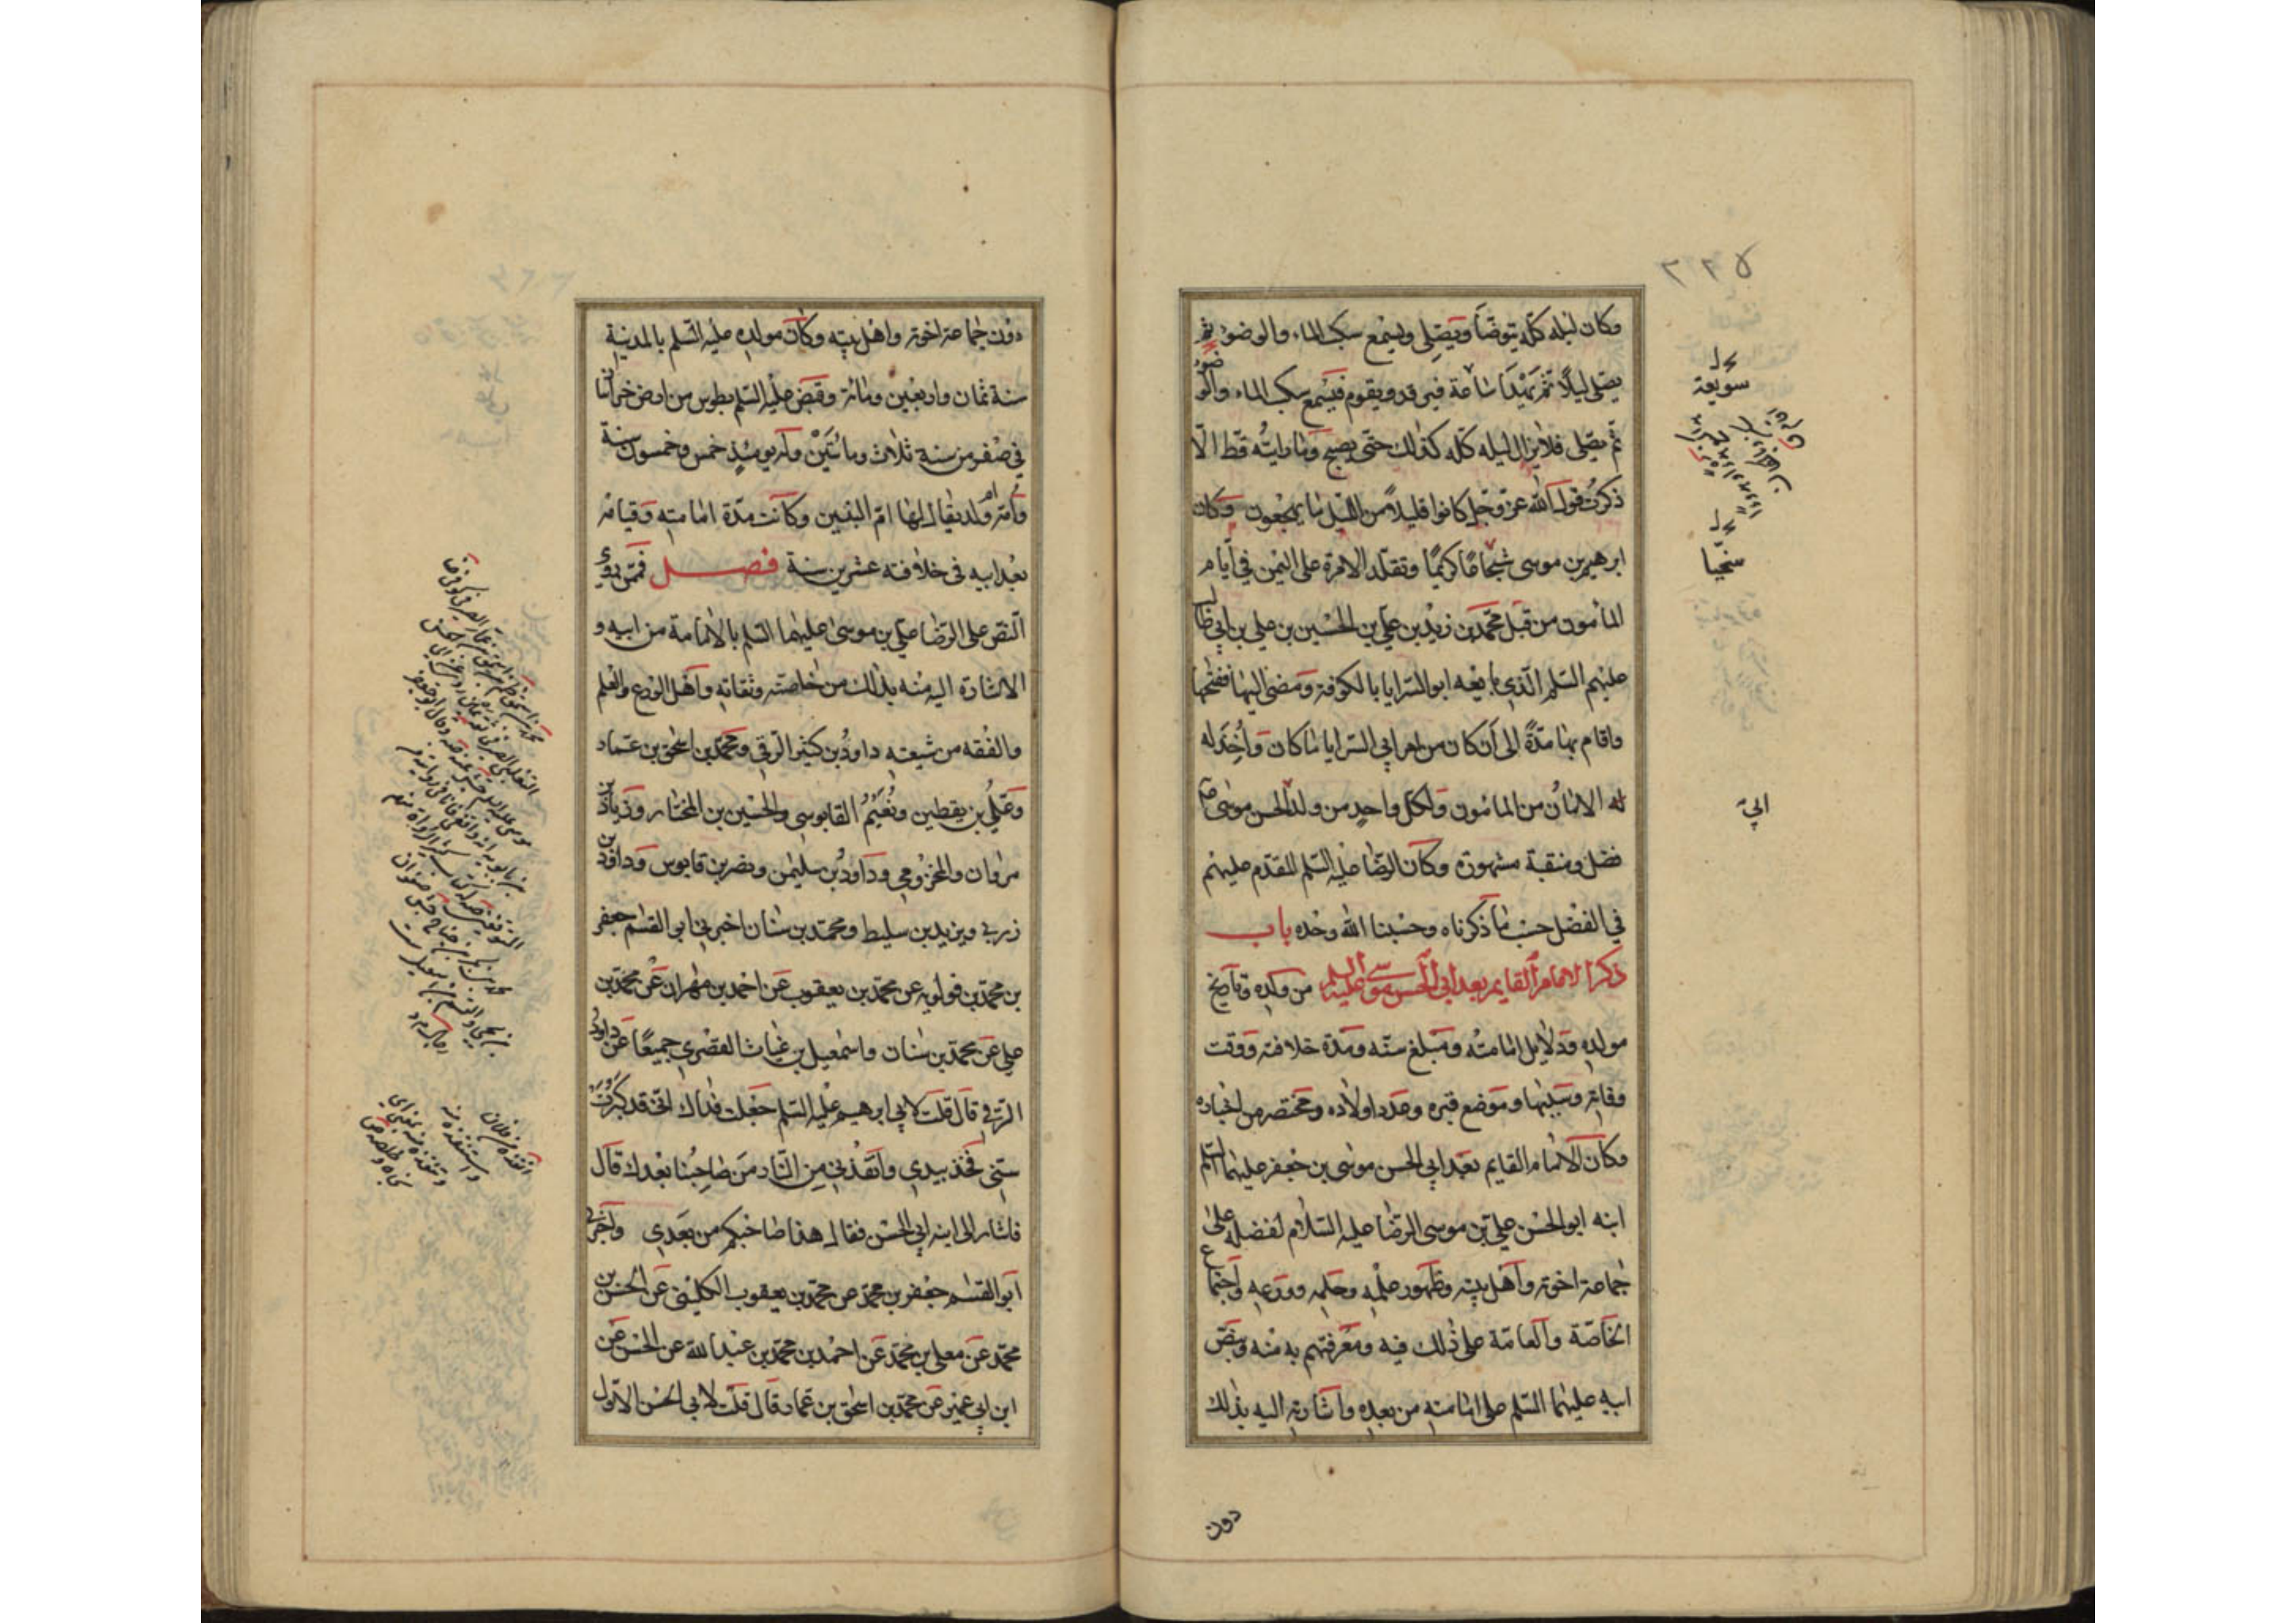 ٢٢٥
وكان ليله كلّه يتوضّأ ويصلّى ويسمع سكب الماء والوضوء ثم
يصلى ليلاً ثم يهدأ ساعة فيرقد ويقوم فيسمع سكب الماء والوضوء
ثم يصلى فلا يزال ليله كله كذلك حتى يصبح وما رايته قط الّا
ذكرت قول الله عز وجل كانوا قليلاً من الليل ما يهجعون وكان
ابرهيم بن موسى شجاعًا كريمًا وتقلّد الامرة على اليمن في ايام
المأمون من قبل محمد بن زيد بن علي بن الحسين بن علي بن ابي طالب
عليهم السلم الّذي بايعه ابو السرايا بالكوفة ومضى اليها ففتحها
واقام بها مدّةً الى أن كان من امر ابي السرايا ما كان وأُخِذَ له
له الامان من المأمون ولكل واحدٍ من ولد ابي الحسن موسى ع
فضل ومنقبة مشهورة وكان الرضا عليه السلم المقدّم عليهم
في الفضل حسب ما ذكرناه وحسبنا الله وحده باب
ذكر الامام القايم بعد ابي الحسن موسى عليه السلم من ولده وتاريخ
مولده ودلايل امامته ومبلغ سنّه ومدّة خلافته ووقت
وفاته وسببها وموضع قبره وعدد اولاده ومختصر من اخباره
وكان الامام القايم بعد ابي الحسن موسى بن جعفر عليهما السلم
ابنه ابو الحسن علي بن موسى الرضا عليه السلام لفضله على
جماعة اخوته وأهل بيته وظهور علمه وحلمه وورعه واجتماع
الخاصّة والعامّة على ذلك فيه ومعرفتهم به منه وبنصّ
ابيه عليهما السلم على امامته من بعده واشارته اليه بذلك
دون
سويعة
سخيا
ابي
دون جماعة اخوته واهل بيته وكان مولده عليه السّلم بالمدينة
سنة ثمان واربعين ومائة وقبض عليه السلم بطوس من ارض خراسان
في صفر من سنة ثلاث ومائتين وله يومئذٍ خمس وخمسون سنة
وأمّه أم ولد يقال لها امّ البنين وكانت مدّة امامته وقيامه
بعد ابيه فى خلافته عشرين سنة فصل فممّن روى
النّص على الرضا علي بن موسى عليهما السلم بالامامة من ابيه و
الاشارة اليه منه بذلك من خاصته وثقاته واهل الورع والعلم
والفقه من شيعته داود بن كثير الرّقي ومحمد بن اسحق بن عمار
وعلي بن يقطين ونعيم القابوسي والحسين بن المختار وزياد بن
مروان والمخزومي وداود بن سليمن ونصر بن قابوس وداود بن
زربي ويزيد بن سليط ومحمد بن سنان اخبرني ابو القاسم جعفر
بن محمد بن قولويه عن محمد بن يعقوب عن احمد بن مهران عن محمد بن
علي عن محمد بن سنان واسمعيل بن غياث القصري جميعًا عن داود
الرّقي قال قلت لابي ابرهيم عليه السلم جعلت فداك انّي قد كبرت
سنّي فخذ بيدي وانقذني من النار من صاحبنا بعدك قال
فاشار الى ابنه ابي الحسن فقال هذا صاحبكم من بعدي واخبرني
ابو القسم جعفر بن محمد عن محمد بن يعقوب الكليني عن الحسين بن
محمد عن معلى بن محمد عن احمد بن محمد بن عبد الله عن الحسن عن
ابن ابي عمير عن محمد بن اسحق بن عمار قال قلت لابي الحسن الاول